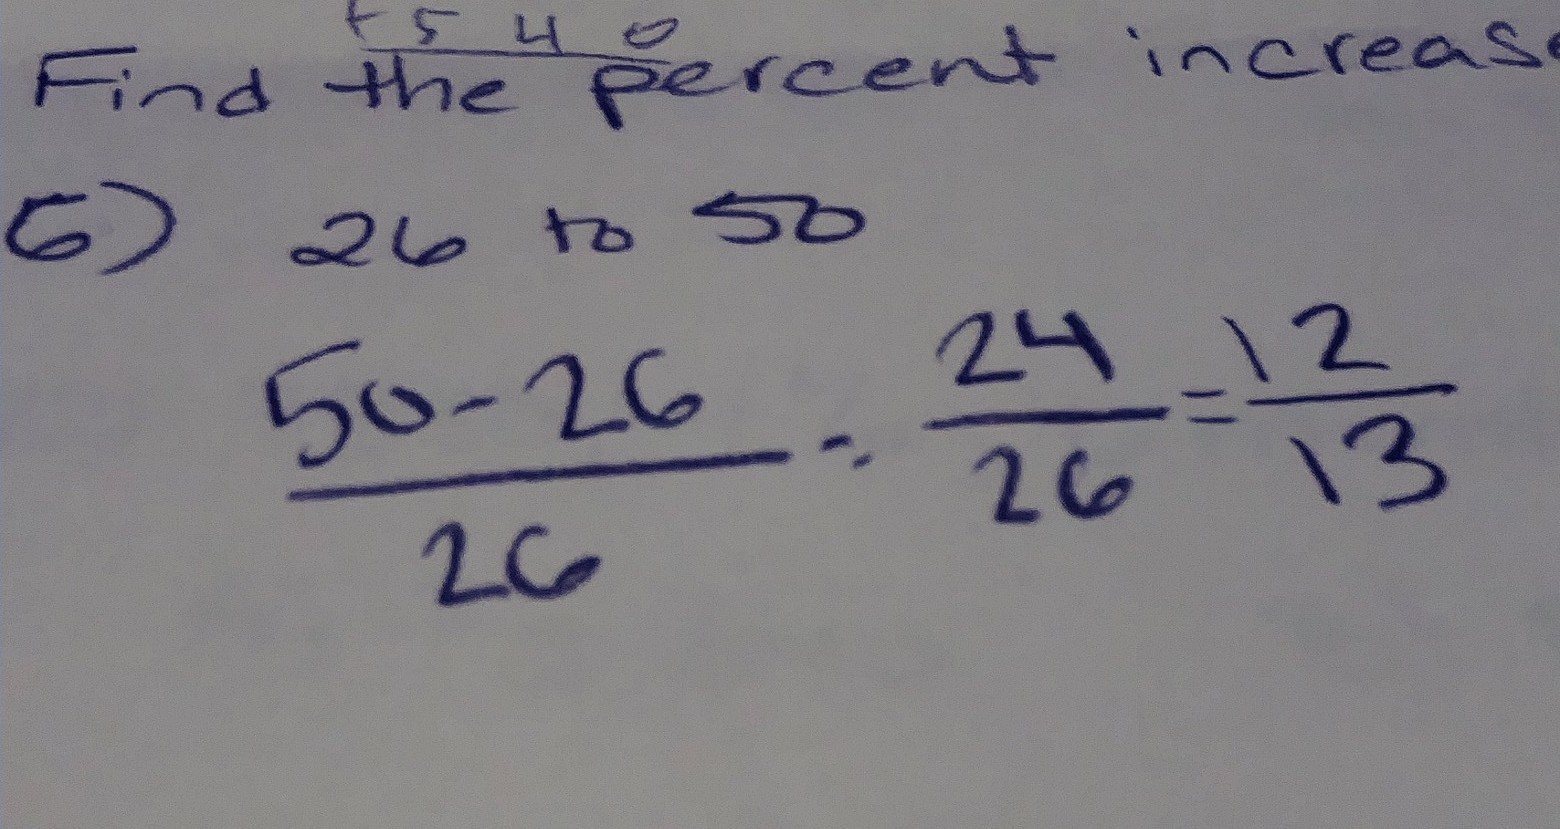 +540
Find the percent increase
6) 26 to 50
50-26 = 24 = 12
26 26 13